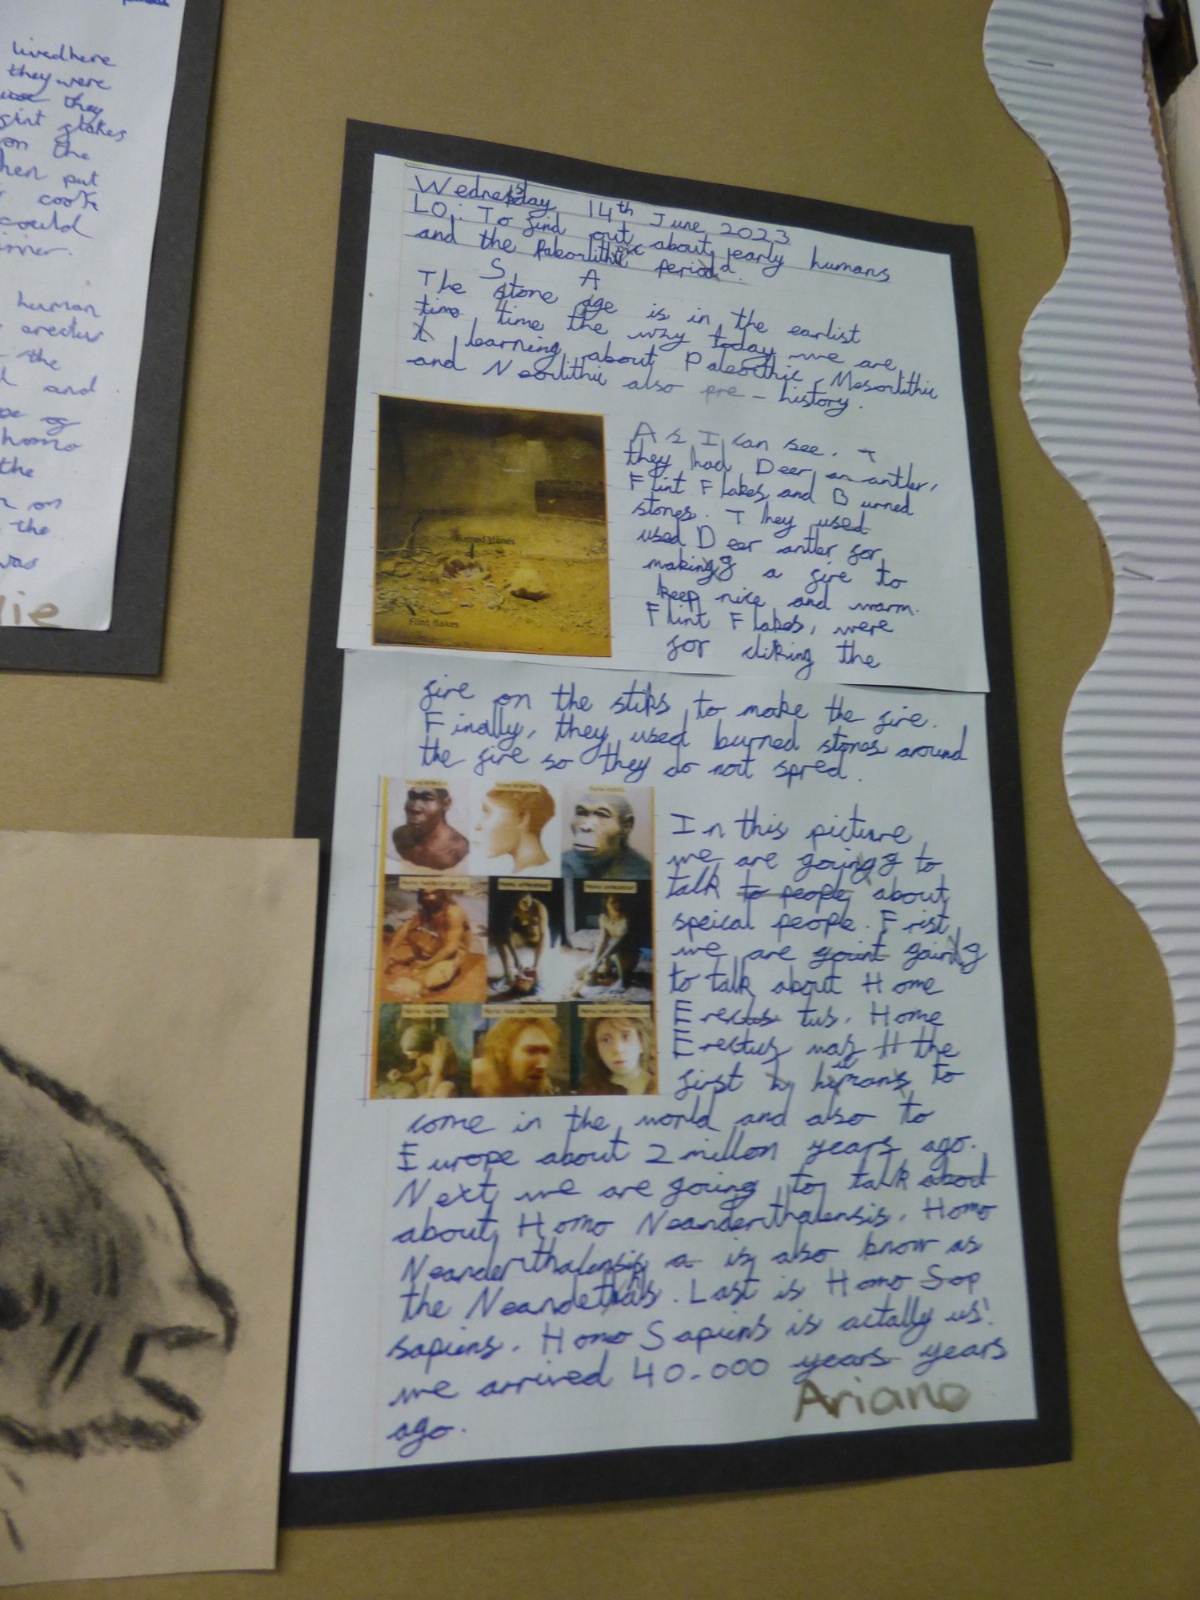 lived here
they were
they
flint flakes
on the
then put
cook
could
dinner.
human
erectus
the
and
of
homo
the
on
the
was
lie
Wednesday 14th June 2023
LO: To find out about yearly humans
and the period.
S A
The stone age is in the earlist
time time the way today we are
learning about Paleothic, Mesorlithic
and Neorlithic also pre-history.
As I can see,
they had Deer an antler,
Flint Flakes and Burned
stones. They used
used Deer antler for
making a fire to
keep nice and warm.
Flint Flakes, were
for cliking the
Burned stones
Flint flakes
fire on the stiks to make the fire.
Finally, they used burned stones around
the fire so they do not spred.
In this picture
we are going to
talk to people about
speical people. Frist
we are goint going
to talk about Home
Erectus tus. Home
Erectus was H the
first h humans to
come in the world and also to
Europe about 2 millon years ago.
Next, we are going to talk about
about Homo Neanderthalensis. Homo
Neanderthalensis a is also know as
the Neandethals. Last is Homo Sap
sapiens. Homo Sapiens is actally us!
we arrived 40.000 years years
ago.
Ariano